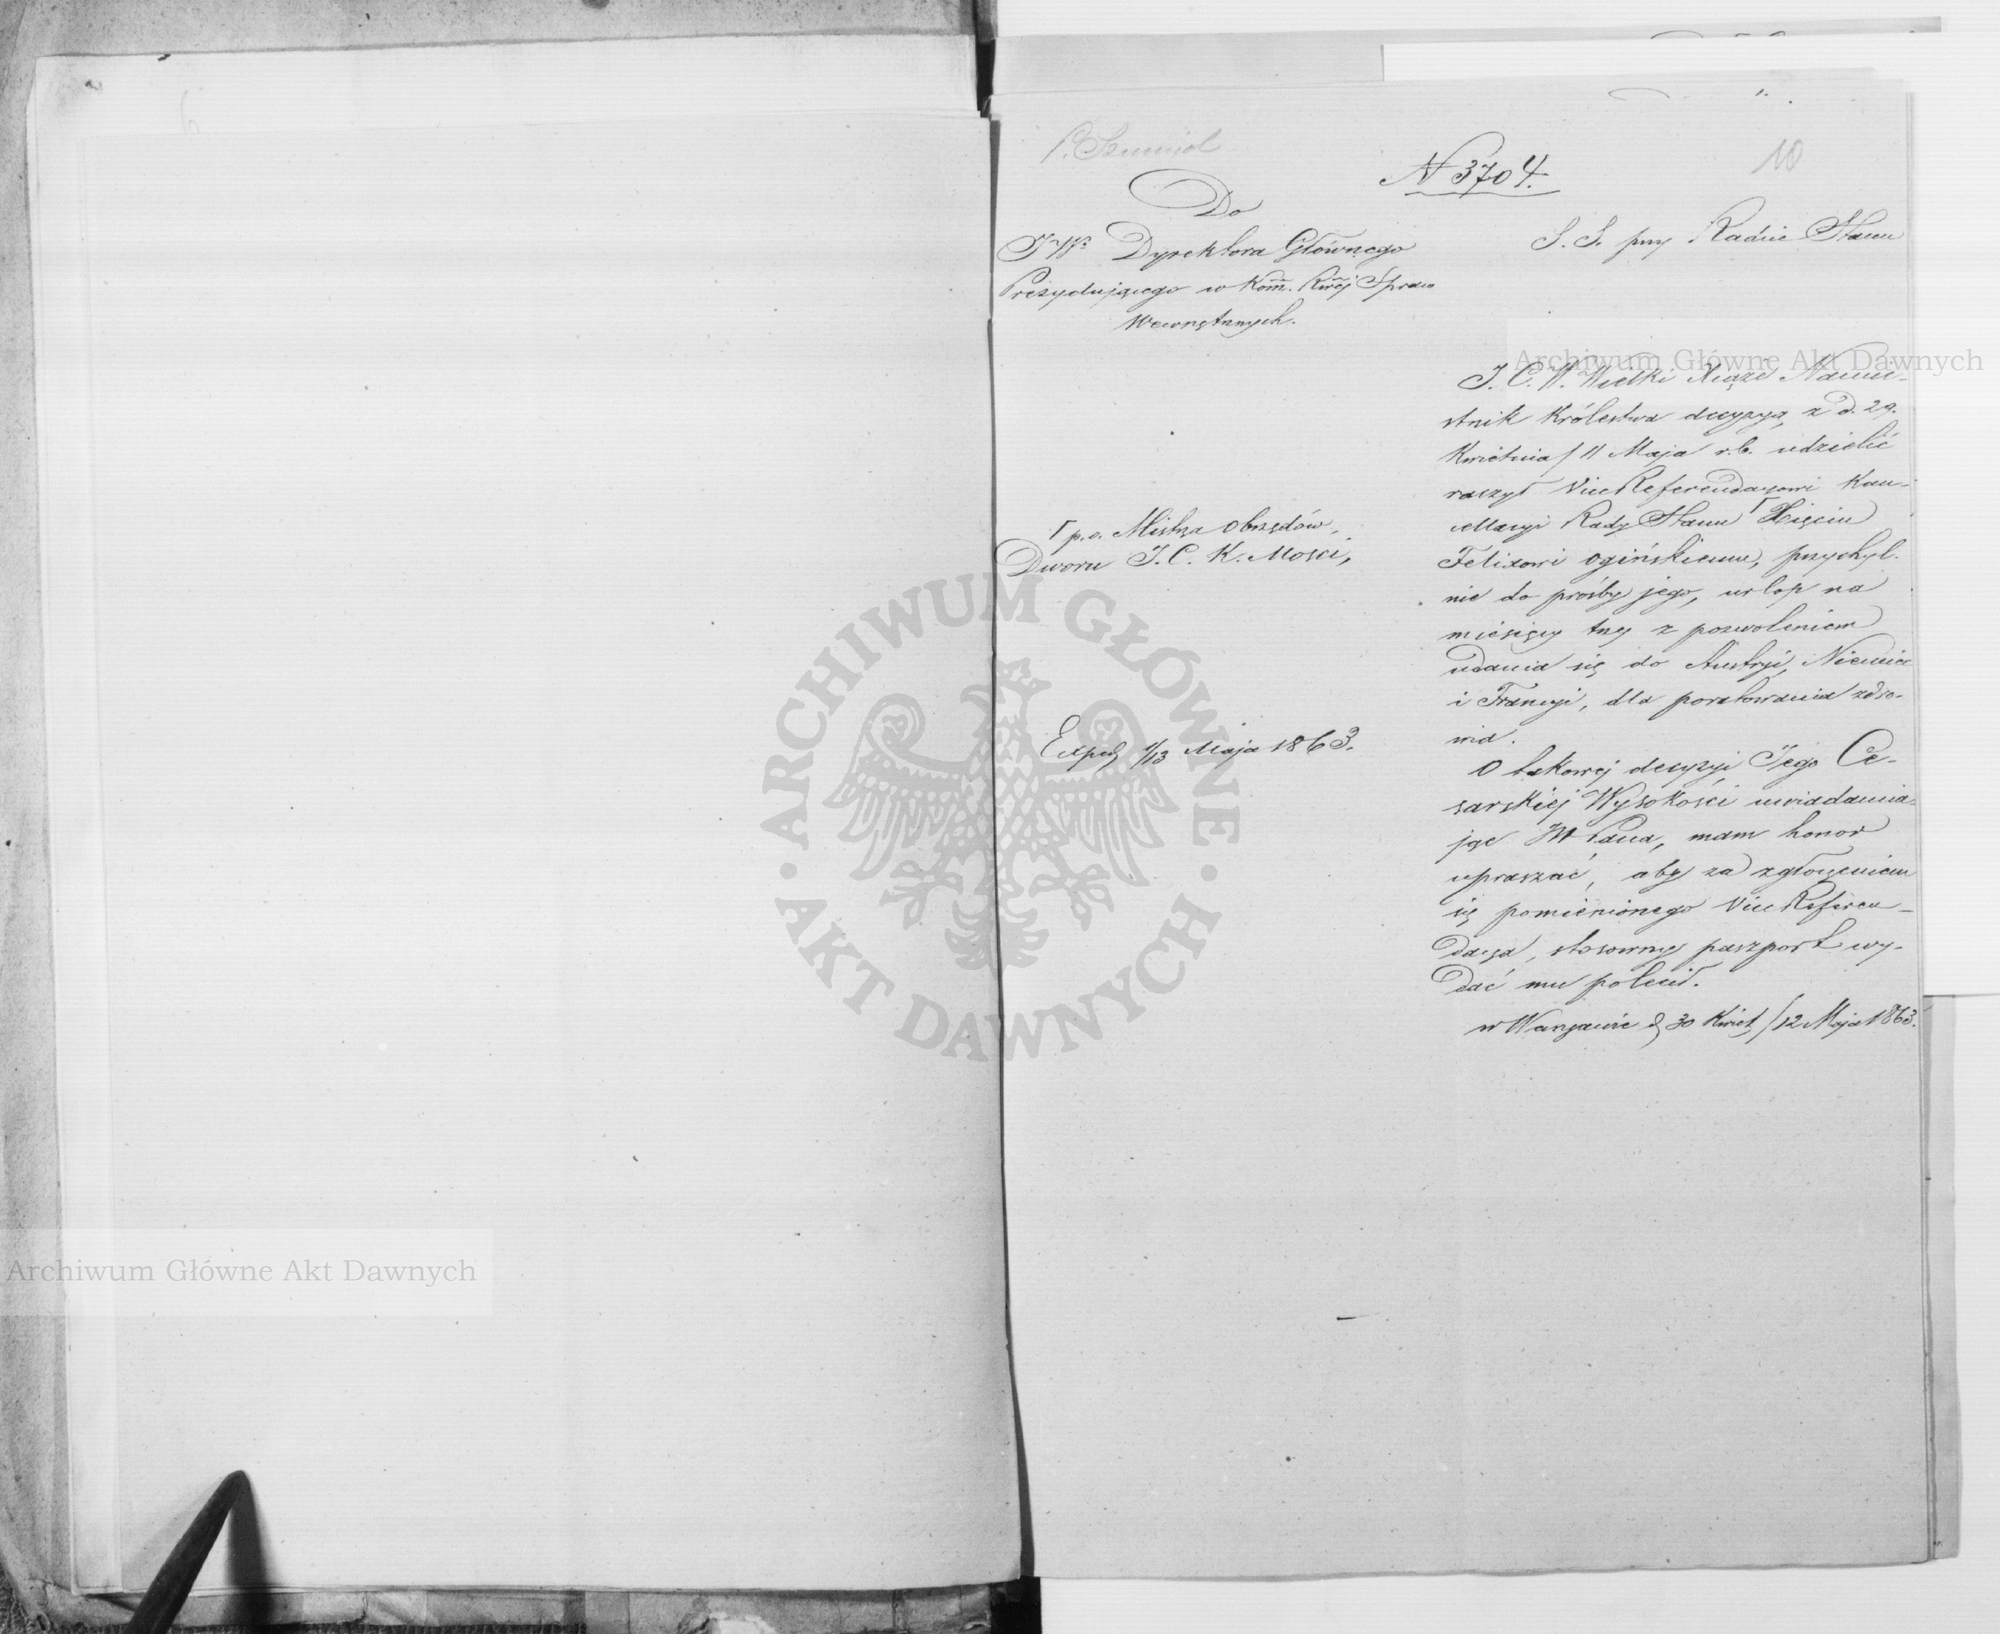 P. Szmidt
10
N 3704.
Do
JWo Dyrektora Głównego
Prezydującego w Kom. Rwej Spraw
Wewnętrznych.
S. S. przy Radzie Stanu
J. C. W. Wielki Xiąże Namie-
stnik Królestwa decyzyą z d. 29.
Kwietnia / 11 Maja r.b. udzielić
raczył ViceReferendarzowi Kan-
cellaryi Rady Stanu Γ Xięciu
Felixowi Ogińskiemu, przychyl-
nie do prośby jego, urlop na
miesięcy trzy z pozwoleniem
udania się do Austryi, Niemiec
i Francyi, dla poratowania zdro-
wia.
O takowej decyzyi Jego Ce-
sarskiej Wysokości uwiadamia-
jąc JW Pana, mam honor
upraszać, aby za zgłoszeniem
się pomienionego ViceReferen-
darza, stosowny paszport wy-
dać mu polecił.
w Warszawie d. 30 Kwiet / 12 Maja 1863.
Γ p.o. Mistrza Obrzędów
Dworu J. C. K. Mości,
Exped. 1/13 Maja 1863.
Archiwum Główne Akt Dawnych
Archiwum Główne Akt Dawnych
ARCHIWUM GŁÓWNE · AKT DAWNYCH ·